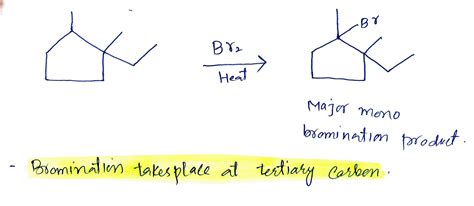 Br
Br2
Heat
Major mono
bromination product.
- Bromination takes place at tertiary carbon.